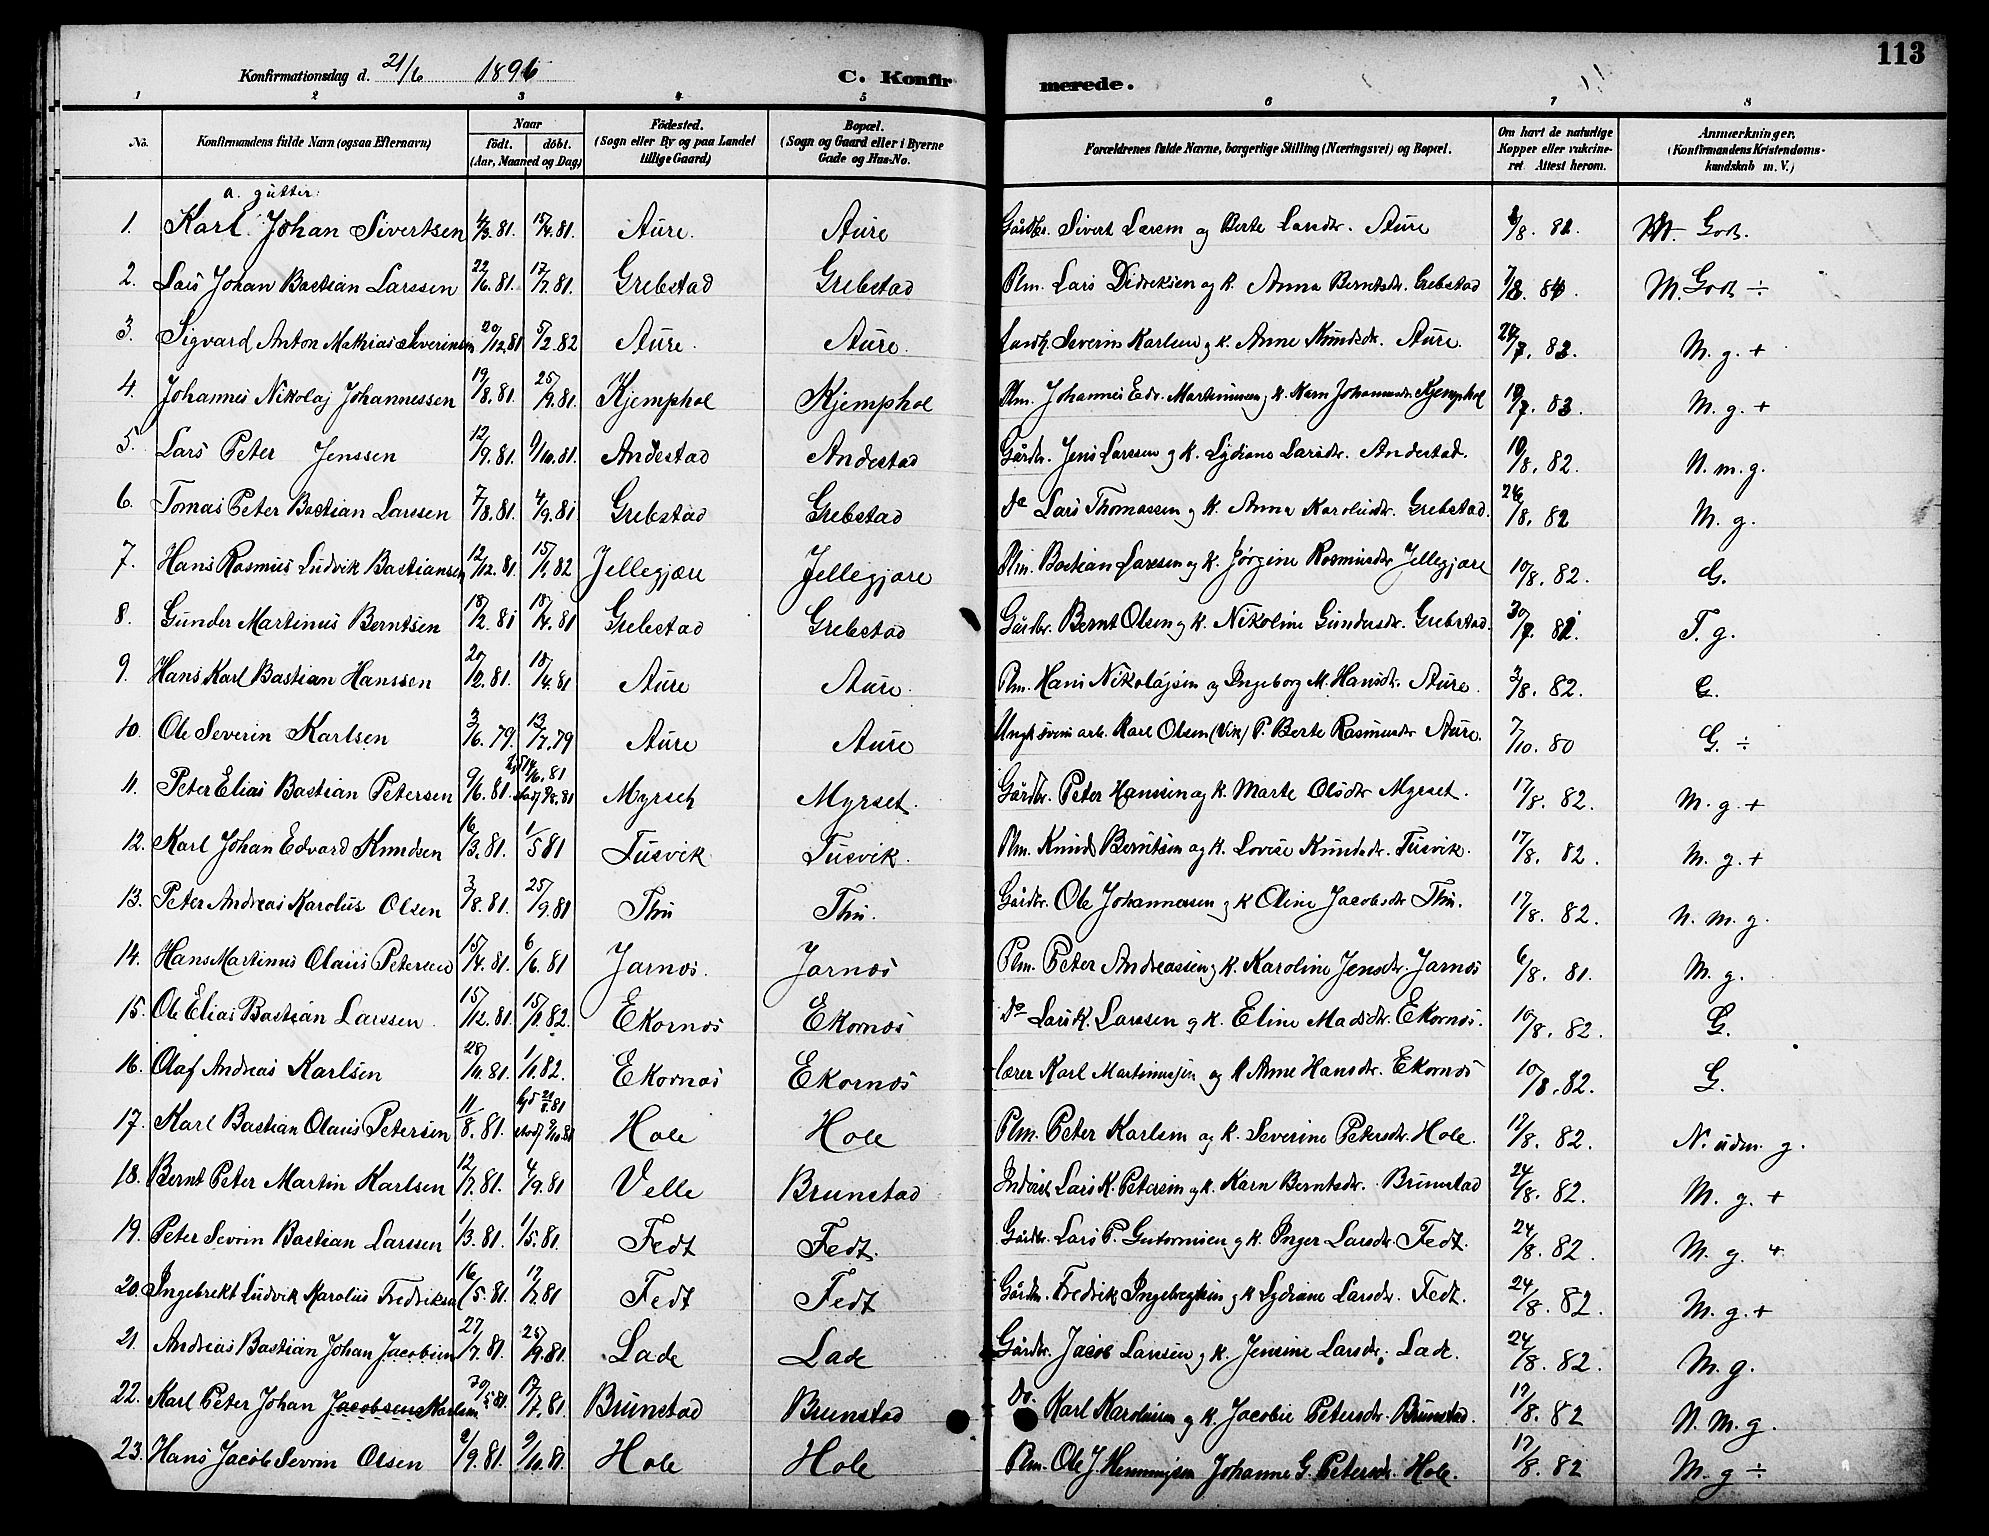 113
Konfirmationsdag d. 21/6 1896 C. Konfirmerede.
1 2 3 4 5 6 7 8
No. Konfirmandens fulde Navn (ogsaa Efternavn) Naar födt. döbt. (Aar, Maaned og Dag) Födested. (Sogn eller By og paa Landet tillige Gaard) Bopæl. (Sogn og Gaard eller i Byerne Gade og Hus-No. Forældrenes fulde Navne, borgerlige Stilling (Næringsvei) og Bopæl. Om havt de naturlige Kopper eller vakcineret Attest herom. Anmærkninger. (Konfirmandens Kristendomskundskab m. V.)
a. gutter:
1. Karl Johan Sivertsen 4/3.81. 15/4.81. Aure. Aure Gårdbr. Sivert Larsen og Berte Larsdr. Aure /8. 82. Godt.
2. Lars Johan Bastian Larssen 22/6.81. 17/7.81. Grebstad Grebstad Plm. Lars Didriksen og K. Anna Berntsdr. Grebstad M. Godt ÷
3. Sigvard Anton Mathias Severinsen 20/12.81 5/2.82 Aure. Aure. Severin Karlsen g K. Anne Knudsdr. Aure. M. g. +
4. Johannes Nikolaj Johannessen 19/8.81. 25/9.81. Kjemphol Kjemphol Plm. Johannes Edv. Martinussen g K. Karn Johannesdr. Kjemphol 19/7. 83. M. g. +
5. Lars Peter Jenssen 12/9.81. 9/10.81. Andestad Andestad Gårdbr. Jens Larssen g K. Lydiane Larsdr. Andestad. 10/8. 82. N. m. g.
6. Tomas Peter Bastian Larssen 7/8.81. 4/9.81 Grebstad Grebstad do Lars Thomassen g K. Anna Karolusdr. Grebstad. 24/8. 82 M. g.
7. Hans Rasmus Ludvik Bastiansen 12/12.81. 15/1.82 Jellegjære Jellegjære Plm. Bastian Larssen og K. Jørgine Rasmusdr. Jellegjære 10/8. 82. G.
8. Gunder Martinus Berntsen 18/2.81 18/4.81 Grebstad Grebstad Gårdbr. Bernt Olsen g K. Nikoline Gundersdr. Grebstad. T. g.
9. Hans Karl Bastian Hanssen 20/2.81. 18/4.81 Aure Aure. Plm. Hans Nikolajsen og Ingeborg M. Hansdr. Aure. 3/8. 82. G.
10. Ole Severin Karlsen 3/6.79. 13/7.79 Aure Aure Ungk. svein arb. Karl Olsen (Vik) P. Berte Rasmusdr. Aure. 7/10. 80 G. ÷
11. Peter Elias Bastian Petersen 9/6.81. /6.81 stadf /8.81 Myrset Myrset. Gårdbr. Peter Hanssen og K. Marte Olsdr Myrset. 17/8. 82. M. g. +
12. Karl Johan Edvard Knudsen 16/3.81. 1/5 81 Tusvik Tusvik. Plm. Knud Berntsen og K. Lovise Knudsdr. Tusvik. 17/8. 82. M. g. +
13. Peter Andreas Karolus Olsen 3/8.81. 25/9.81 Thu Thu. Gårdbr. Ole Johannessen g K Oline Jacobsdr Thu. 17/8. 82. N. m. g.
14. Hans Martinus Olaus Petersen 15/4.81. 6/6.81 Jarnes. Jarnes Plm. Peter Andreassen g K. Karoline Jensdr. Jarnes 6/8. 81. M. g.
15. Ole Elias Bastian Larssen. 15/12.81 15/1.82. Ekornes Ekornes do Lars K. Larssen g K. Eline Madsdr. Ekornes. 10/8. 82. G.
16. Olaf Andreas Karlsen 28/11.81. 1/1.82. Ekornes Ekornes Lærer Karl Martinussen og K Anne Hansdr. Ekornes 10/8. 82. G.
17. Karl Bastian Olaus Petersen 11/8.81. 21/8.81 stadf 9/10.81 Hole Hole Plm. Peter Karlsen og K. Severine Petersdr. Hole. 17/8. 82. N. udm. g.
18. Bernt Peter Martin Karlsen 12/7.81. 4/9.81 Velle Brunstad Inderst Lars K. Petersen g K. Karn Berntsdr. Brunstad 24/8. 82. M. g. +
19. Peter Sevrin Bastian Larssen 1/3.81. 1/5.81. Fedt Fedt. Gårdbr. Lars P. Guttormsen g K. Inger Larsdr. Fedt. 24/8. 82. M. g. +
20. Ingebrekt Ludvik Karolus Fredriksen 16/5.81. 17/7.81 Fedt Fedt Gårdbr. Fredrik Ingebregtsen g K Lydiane Larsdr. Fedt. 24/8. 82. M. g. +
21. Andreas Bastian Johan Jacobsen 27/7.81. 25/9.81. Lade Lade Gårdbr. Jacob Larssen g K. Jensine Larsdr. Lade. 24/8. 82. M. g.
22. Karl Peter Johan Jacobsens Karlsen 30/5.81. 17/7.81. Brunstad Brunstad Do. Karl Karolusen g K. Jacobie Petersdr. Brunstad. 17/8. 82 N. M. g.
23. Hans Jacob Sevrin Olsen 2/9.81. 9/10.81. Hole Hole Plm. Ole J Henningsen Johanne G. Petersdr. Hole. 17/8. 82 M. g ÷